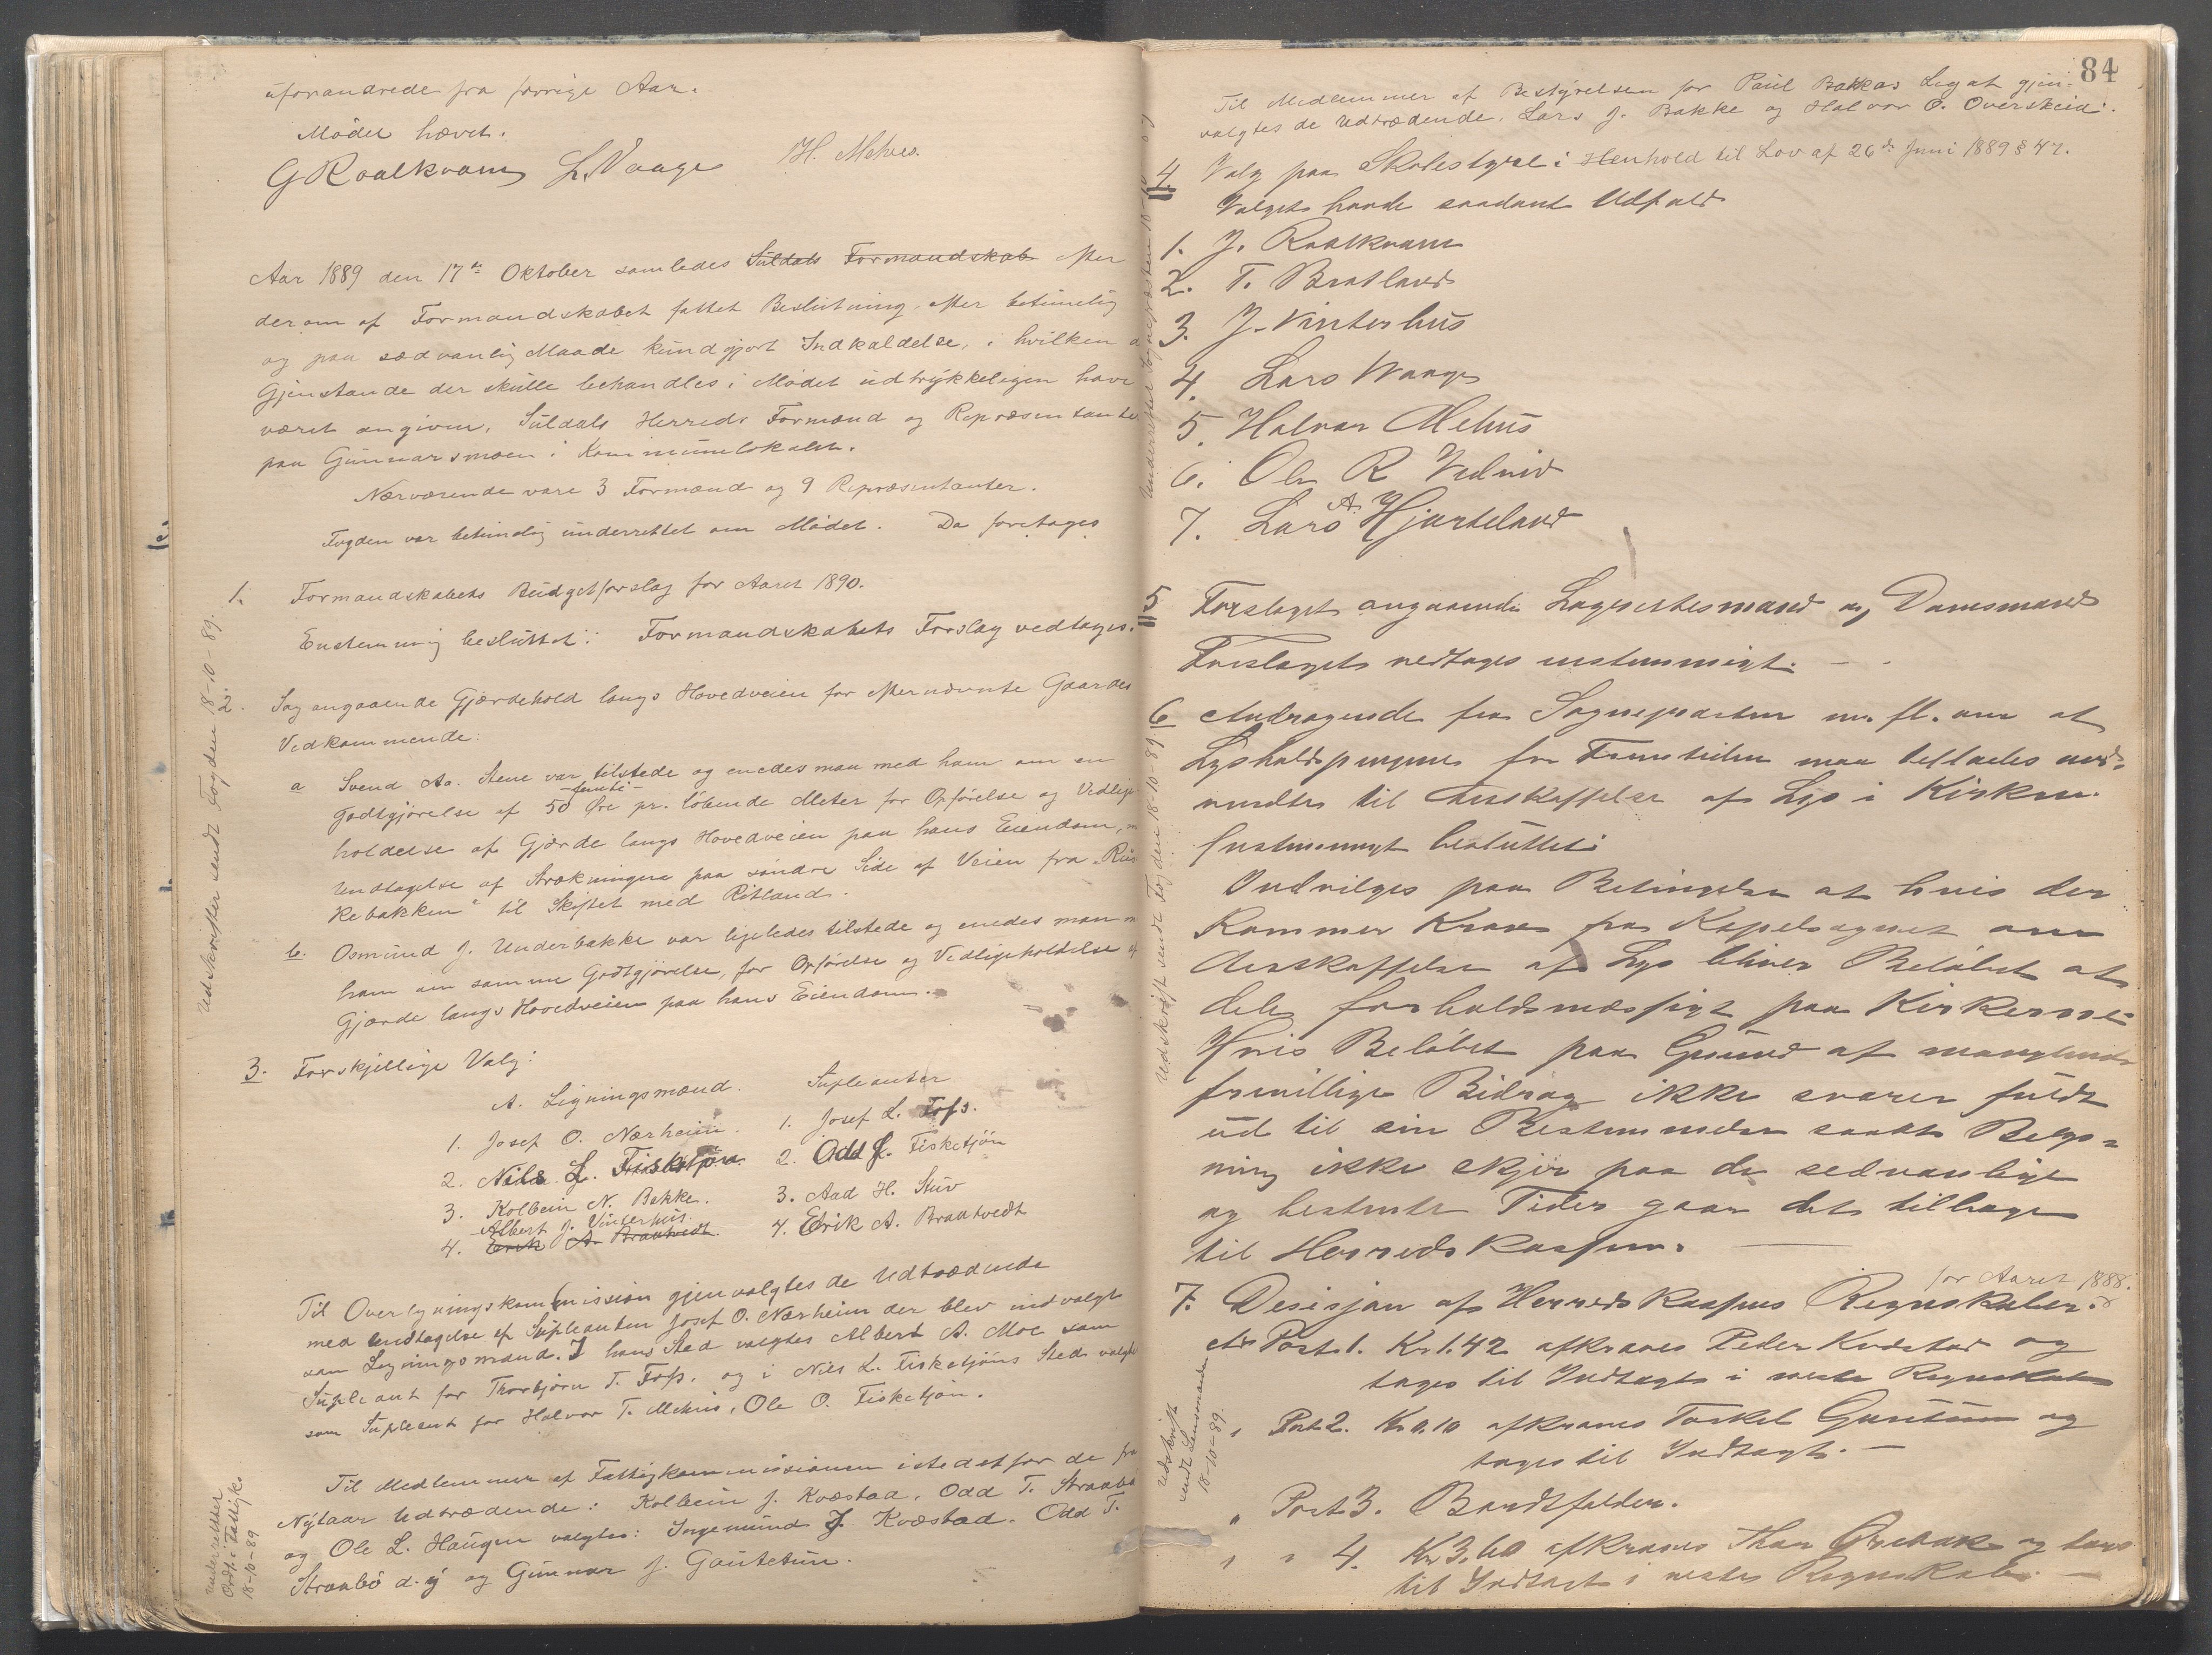 uforandrede fra forrige Aar.
Mødet hævet.
G Roalkvam L. Vaage H. Mehus.
Aar 1889 den 17de Oktober samledes Suldals Formandskab efter
derom af Formandskabet fattet Beslutning efter betimelig
og paa sædvanlig Maade kundgjort Indkaldelse, i hvilken
Gjenstande der skulle behandles i Mødet udtrykkeligen have
været angiven, Suldals Herreds Formænd og Repræsentanter
paa Gunnarsmoen i Kommunelokalet.
Nærværende vare 3 Formænd og 9 Repræsentanter.
Fogden var betimelig underrettet om Mødet. Da foretages
1. Formandskabets Budgetforslag for Aaret 1890.
Enstemmig besluttet: Formandskabets Forslag vedtages.
2. Sag angaaende Gjærdehold langs Hovedveien for efternævnte Gaardes
Vedkommende:
a Svend Aa. Stene var tilstede og enedes man med ham om en
Godtgjørelse af 50 -femti- Øre pr. løbende Meter for Opførelse og Vedlige
holdelse af Gjærde langs Hovedveien paa hans Eiendom,
Undtagelse af Strækningen paa søndre Side af Veien fra „Rus
kebakken" til Skiftet med Ritland.
b. Osmund J. Underbakke var ligeledes tilstede og enedes man
ham om samme Godtgjørelse, for Opførelse og Vedligeholdelse af
Gjærde langs Hovedveien paa hans Eiendom.
3. Forskjellige Valg:
A. Ligningsmænd. Supleanter
1. Josef O. Nærheim. 1. Josef L. Foss.
2. Nils L. Fisketjøn. 2. Odd J. Fisketjøn
3. Kolbein N. Bakke. 3. Aad H. Stuv
Albert J. Vinterhus.
4. Erik A. Braatvedt 4. Erik A. Braatvedt
Til Overligningskommission gjenvalgtes de Udtrædende
med Undtagelse af Supleanten Josef O. Nærheim der blev indvalgt
som Ligningsmand. I hans Sted valgtes Albert A. Moe som
Supleant for Thorbjørn T. Foss, og i Nils L. Fisketjøns Sted valgtes
som Supleant for Halvor T. Mehus, Ole O. Fisketjøn.
Til Medlemmer af Fattigkommissionen istedetfor de fra
Nytaar Udtrædende: Kolbein J. Kvæstad, Odd T. Straabø
og Ole L. Haugen valgtes: Ingemund J. Kvæstad. Odd T.
Straabø d.y og Gunnar J. Gautetun.
Udskrifter sendt Fogden 18-10-89.
Underretter
Ordf. i Fattigk.
18-10-89
84
Til Medlemmer af Bestyrelsen for Paul Bakkas Legat gjen-
valgtes de Udtrædende, Lars J. Bakke og Halvor O. Overskeid.
4. Valg paa Skolestyre i Henhold til Lov af 26de Juni 1889 § 47.
Valget havde saadant Udfald
1. J. Roalkvam
2. T. Bratland
3. J. Vinterhus
4. Lars Waage
5. Halvor Mehus
6. Ole R Vedvik
7. Lars A. Hjorteland
5 Forslaget angaaende Lagrettesmænd og Domsmænd
Forslaget vedtages enstemmigt.
6 Andragende fra Sognepræsten m. fl. om at
Lysholdspengene for Fremtiden maa tillades an-
vendte til Anskaffelse af Lys i Kirken.
Enstemmigt besluttet:
Indvilges paa Betingelse at hvis der
kommer Krav fra Kapelsognet om
Anskaffelse af Lys bliver Beløbet at
dele forholdsmæssigt paa Kirkerne
Hvis Beløbet paa Grund af manglende
frivillige Bidrag ikke svarer fuldt
ud til sin Bestemmelse samt Belys-
ning ikke skjer paa de sedvanlige
og bestemte Tider gaar det tilbage
til Herredskassen.
7. Desisjon af Herredskassens Regnskaber for Aaret 1888.
Ad Post 1. Kr 1.42 afkræves Peder Kvæstad og
tages til Indtægt i næste Regnskab
„ Post 2. Kr 0.10 afkræves Torkel Gautetun og
tages til Indtægt.
„ Post 3. Bortfalder.
„ „ 4. Kr 3,60 afkræves Thor Ørebak og tages
til Indtægt i næste Regnskab.
Udskrift sendt Fogden 18-10-89.
Udskrift
sendt Lensmanden
18-10-89.